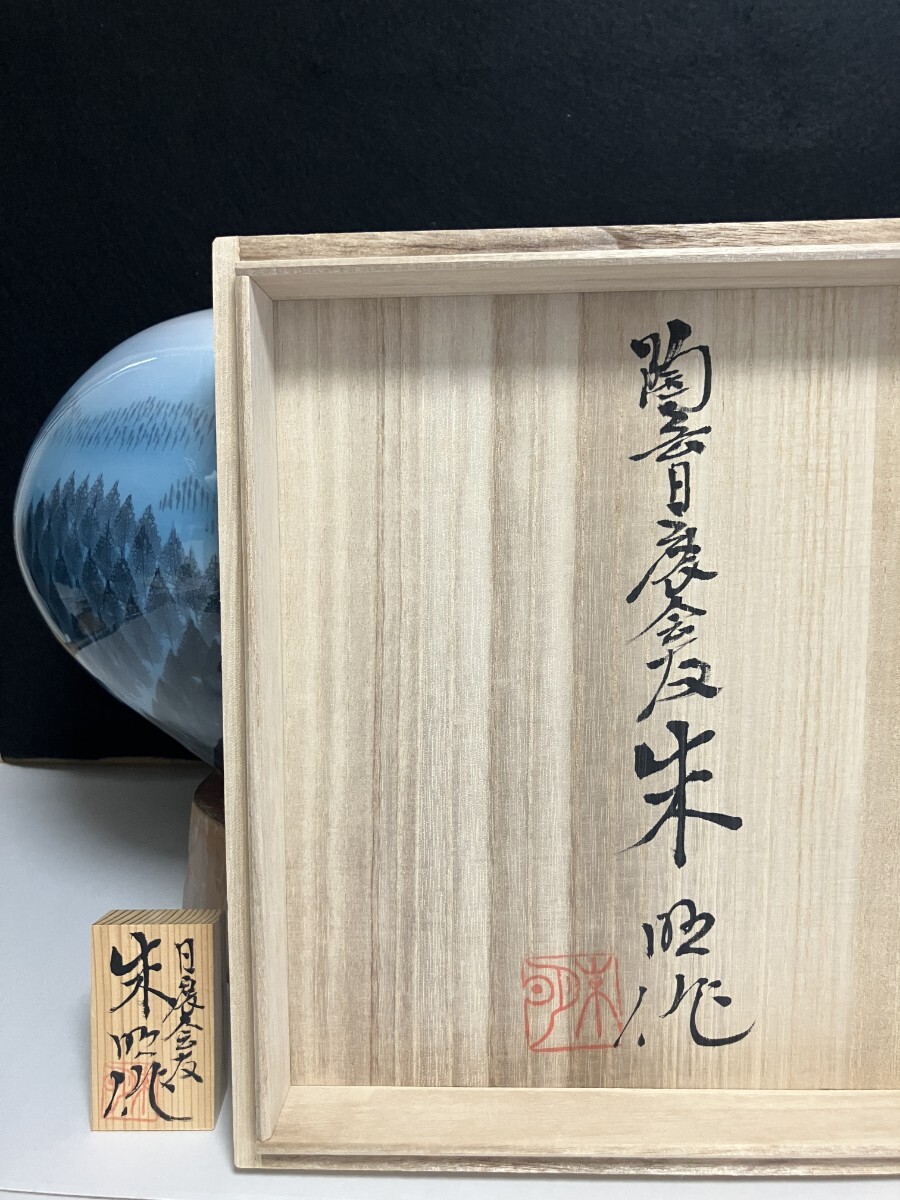 陶芸日展会友 朱明作
朱明
日展会友
朱明作